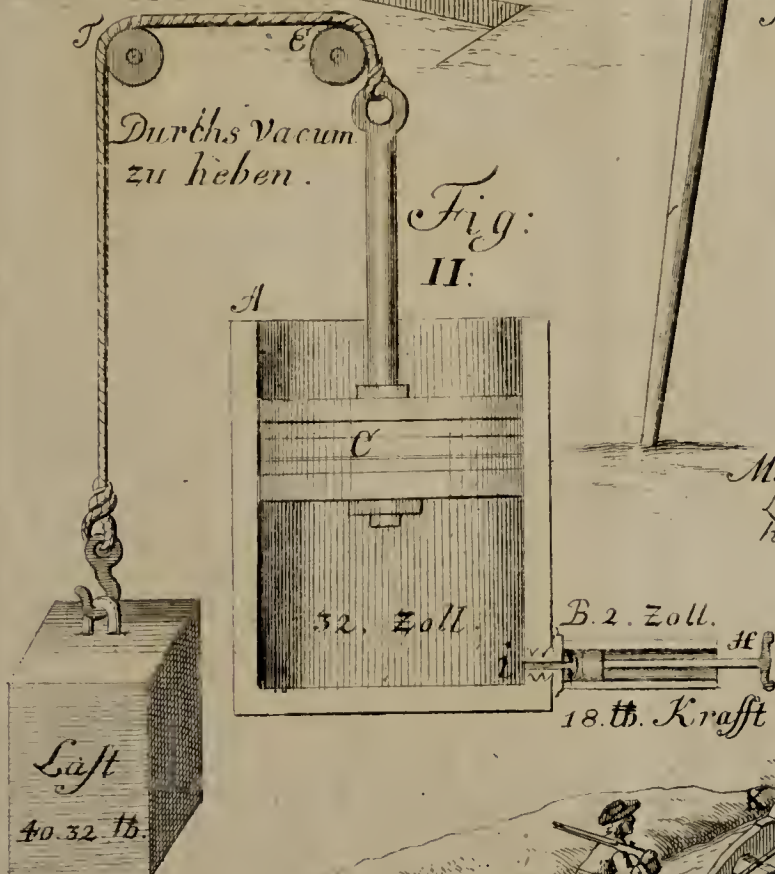 T
E
Durchs Vacum
zu heben.
Fig:
II:
A
C
32. Zoll.
B. 2. Zoll.
i
H
18. ℔. Krafft
Last
40.32 ℔.
K